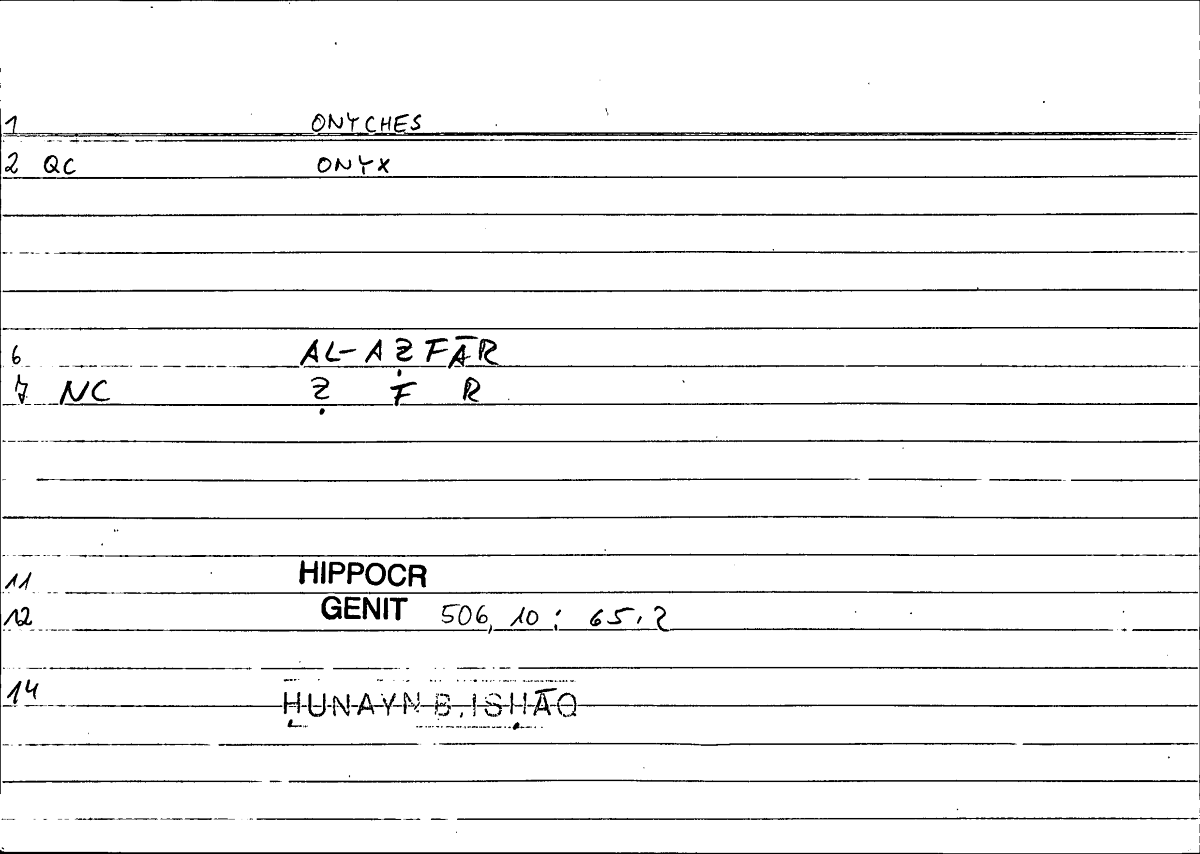 1 ONYCHES
2 QC ONYX
6 AL-AẒFĀR
7 NC Ẓ F R
11 HIPPOCR
12 GENIT 506, 10 : 65.2
14 ḤUNAYN B. ISḤĀQ